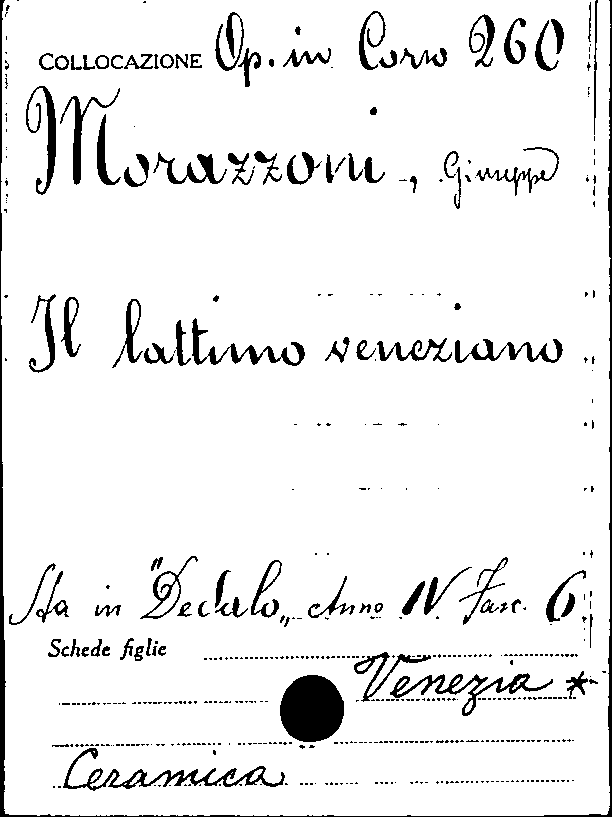 COLLOCAZIONE Op. in Corso 260
Morazzoni, Giuseppe
Il lattimo veneziano
Sta in "Dedalo„ Anno IV Fasc. 6
Schede figlie
Venezia *
Ceramica